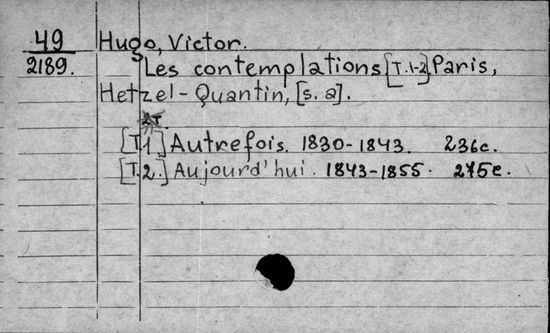 49 Hugo, Victor.
2189. Les contemplations [T.1-2] Paris,
Hetzel-Quantin, [s. a].
2т
[T.1] Autrefois. 1830-1843. 236c.
[T.2.] Aujourd'hui. 1843-1855. 275c.